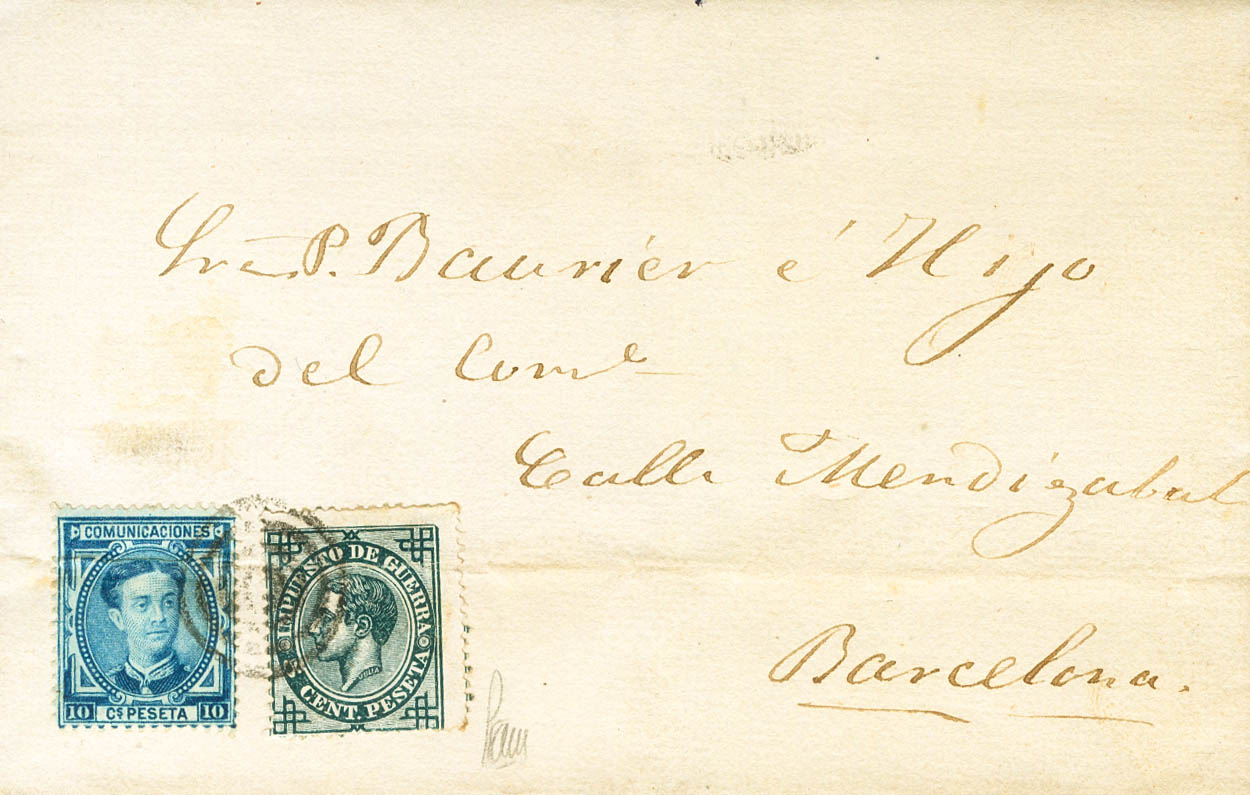 Sres P. Baurier é Hijo
del Comº
Calle Mendizabal
Barcelona.
COMUNICACIONES
10 Cs PESETA 10
IMPUESTO DE GUERRA
5 CENT. PESETA